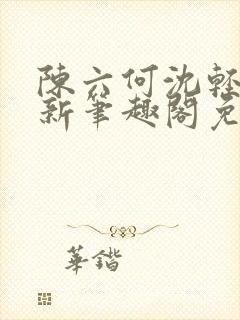 陳六何沈輕
新筆趣閣免
華鍇